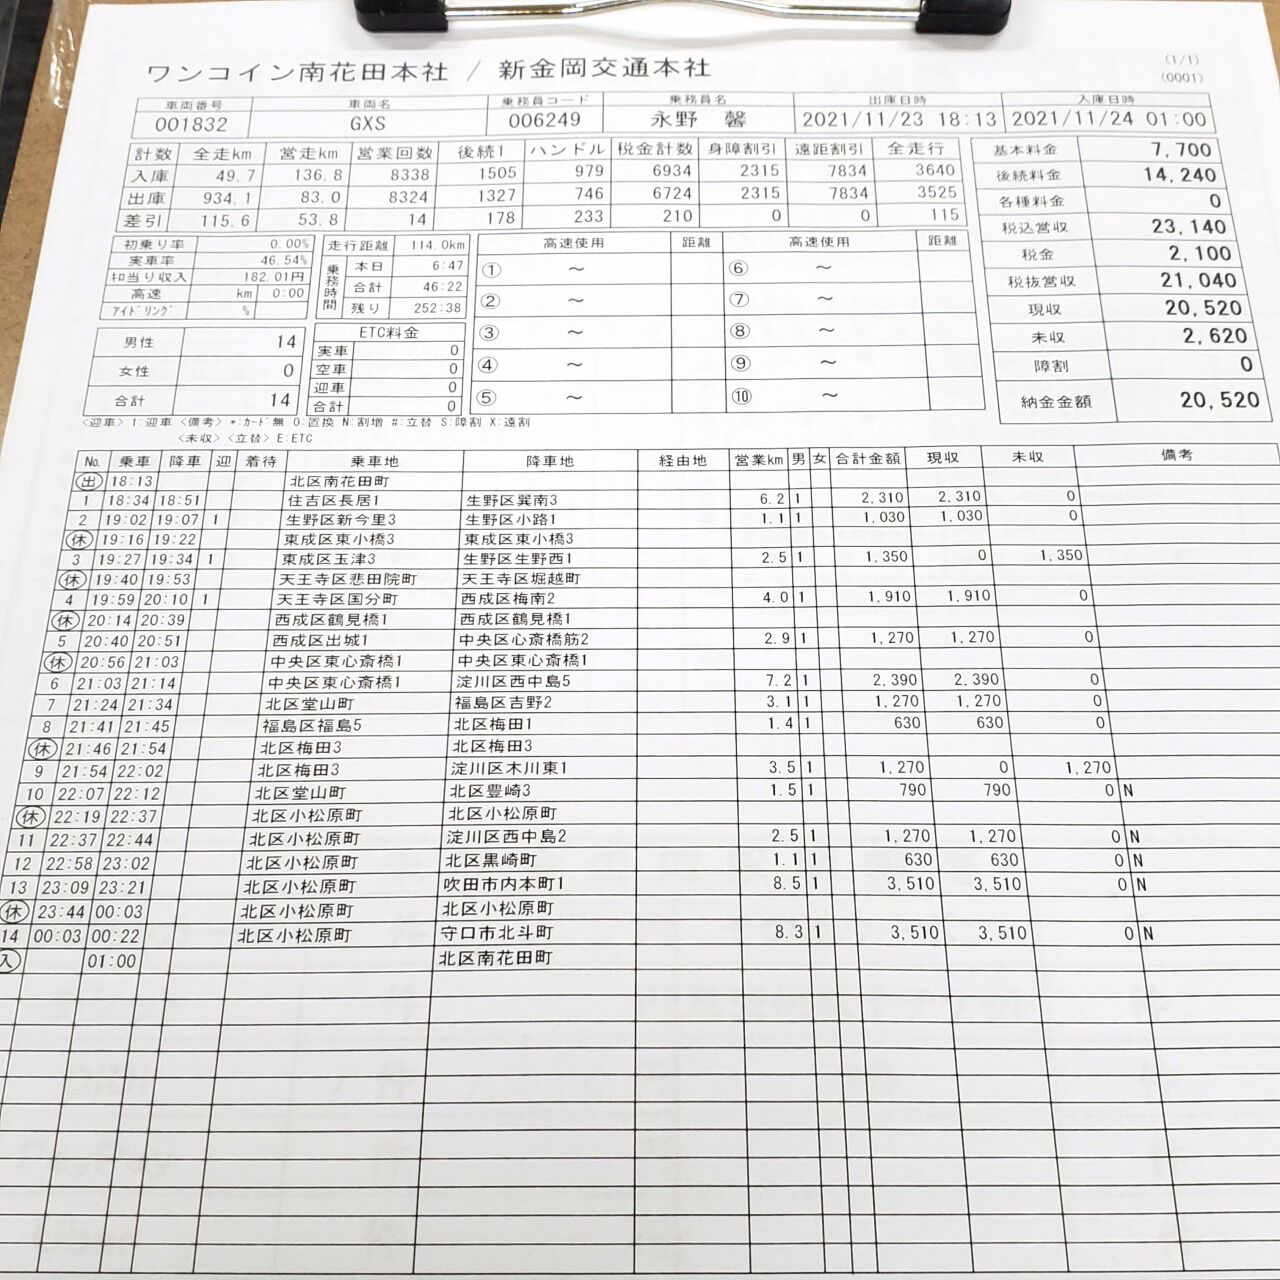 ワンコイン南花田本社 / 新金岡交通本社
(1/1)
(0001)
車両番号 車両名 乗務員コード 乗務員名 出庫日時 入庫日時
001832 GXS 006249 永野 馨 2021/11/23 18:13 2021/11/24 01:00
計数 全走km 営走km 営業回数 後続1 ハンドル 税金計数 身障割引 遠距割引 全走行
入庫 49.7 136.8 8338 1505 979 6934 2315 7834 3640
出庫 934.1 83.0 8324 1327 746 6724 2315 7834 3525
差引 115.6 53.8 14 178 233 210 0 0 115
基本料金 7,700
後続料金 14,240
各種料金 0
税込営収 23,140
税金 2,100
税抜営収 21,040
現収 20,520
未収 2,620
障割 0
納金金額 20,520
初乗り率 0.00%
実車率 46.54%
㌔当り収入 182.01円
高速 km 0:00
アイドリング %
走行距離 114.0km
乗務時間 本日 6:47
合計 46:22
残り 252:38
高速使用 距離 高速使用 距離
① ～ ⑥ ～
② ～ ⑦ ～
③ ～ ⑧ ～
④ ～ ⑨ ～
⑤ ～ ⑩ ～
男性 14
女性 0
合計 14
ETC料金
実車 0
空車 0
迎車 0
合計 0
<迎車> 1:迎車 <備考> *:カード無 O:置換 N:割増 #:立替 S:障割 X:遠割
<未収> <立替> E:ETC
No. 乗車 降車 迎 着待 乗車地 降車地 経由地 営業km 男 女 合計金額 現収 未収 備考
出 18:13 北区南花田町
1 18:34 18:51 住吉区長居1 生野区巽南3 6.2 1 2,310 2,310 0
2 19:02 19:07 1 生野区新今里3 生野区小路1 1.1 1 1,030 1,030 0
休 19:16 19:22 東成区東小橋3 東成区東小橋3
3 19:27 19:34 1 東成区玉津3 生野区生野西1 2.5 1 1,350 0 1,350
休 19:40 19:53 天王寺区悲田院町 天王寺区堀越町
4 19:59 20:10 1 天王寺区国分町 西成区梅南2 4.0 1 1,910 1,910 0
休 20:14 20:39 西成区鶴見橋1 西成区鶴見橋1
5 20:40 20:51 西成区出城1 中央区心斎橋筋2 2.9 1 1,270 1,270 0
休 20:56 21:03 中央区東心斎橋1 中央区東心斎橋1
6 21:03 21:14 中央区東心斎橋1 淀川区西中島5 7.2 1 2,390 2,390 0
7 21:24 21:34 北区堂山町 福島区吉野2 3.1 1 1,270 1,270 0
8 21:41 21:45 福島区福島5 北区梅田1 1.4 1 630 630 0
休 21:46 21:54 北区梅田3 北区梅田3
9 21:54 22:02 北区梅田3 淀川区木川東1 3.5 1 1,270 0 1,270
10 22:07 22:12 北区堂山町 北区豊崎3 1.5 1 790 790 0 N
休 22:19 22:37 北区小松原町 北区小松原町
11 22:37 22:44 北区小松原町 淀川区西中島2 2.5 1 1,270 1,270 0 N
12 22:58 23:02 北区小松原町 北区黒崎町 1.1 1 630 630 0 N
13 23:09 23:21 北区小松原町 吹田市内本町1 8.5 1 3,510 3,510 0 N
休 23:44 00:03 北区小松原町 北区小松原町
14 00:03 00:22 北区小松原町 守口市北斗町 8.3 1 3,510 3,510 0 N
入 01:00 北区南花田町